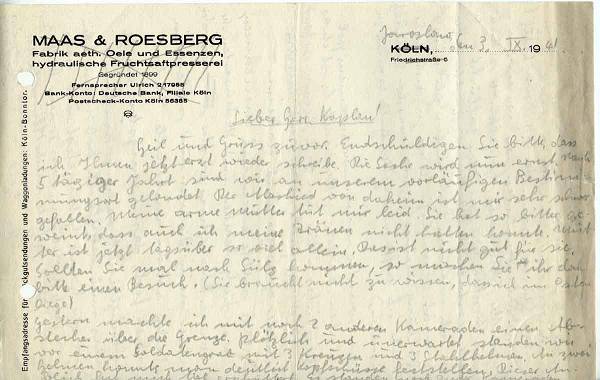 MAAS & ROESBERG
Fabrik aeth. Oele und Essenzen,
hydraulische Fruchtsaftpresserei
Gegründet 1899
Fernsprecher Ulrich 217955
Bank-Konto: Deutsche Bank, Filiale Köln
Postscheck-Konto Köln 56385
Jaroslau
KÖLN, den 3. IX. 1941
Friedrichstraße 6
Empfangsadresse für Stückgutsendungen und Waggonladungen: Köln-Bonntor.
Lieber Herr Kaplan!
Heil und Gruss zuvor. Endschuldigen Sie bitte, dass
ich Ihnen jetzt erst wieder schreibe. Die Sache wird nun ernst. Nach
5 tägiger Fahrt sind wir an unserem vorläufigen Bestim
mungsort gelandet. Der Abschied von daheim ist mir sehr schwer
gefallen. Meine arme Mutter tut mir leid. Sie hat so bitter ge
weint, dass auch ich meine Tränen nicht halten konnte. Mut
ter ist jetzt tagsüber so viel allein. Das ist nicht gut für sie.
Sollten Sie mal nach Sülz kommen, so machen Sie ihr dan
bitte einen Besuch. (Sie braucht nicht zu wissen, dass ich im Osten
liege)
Gestern machte ich mit noch 2 anderen Kameraden einen Abe
stecher über die Grenze. Plötzlich und unerwartet standen wir
vor einem Soldatengrab mit 3 Kreuzen und 3 Stahlhelmen. An zwei
Helmen konnte man deutlich Kopfschüsse feststellen. Dieser An